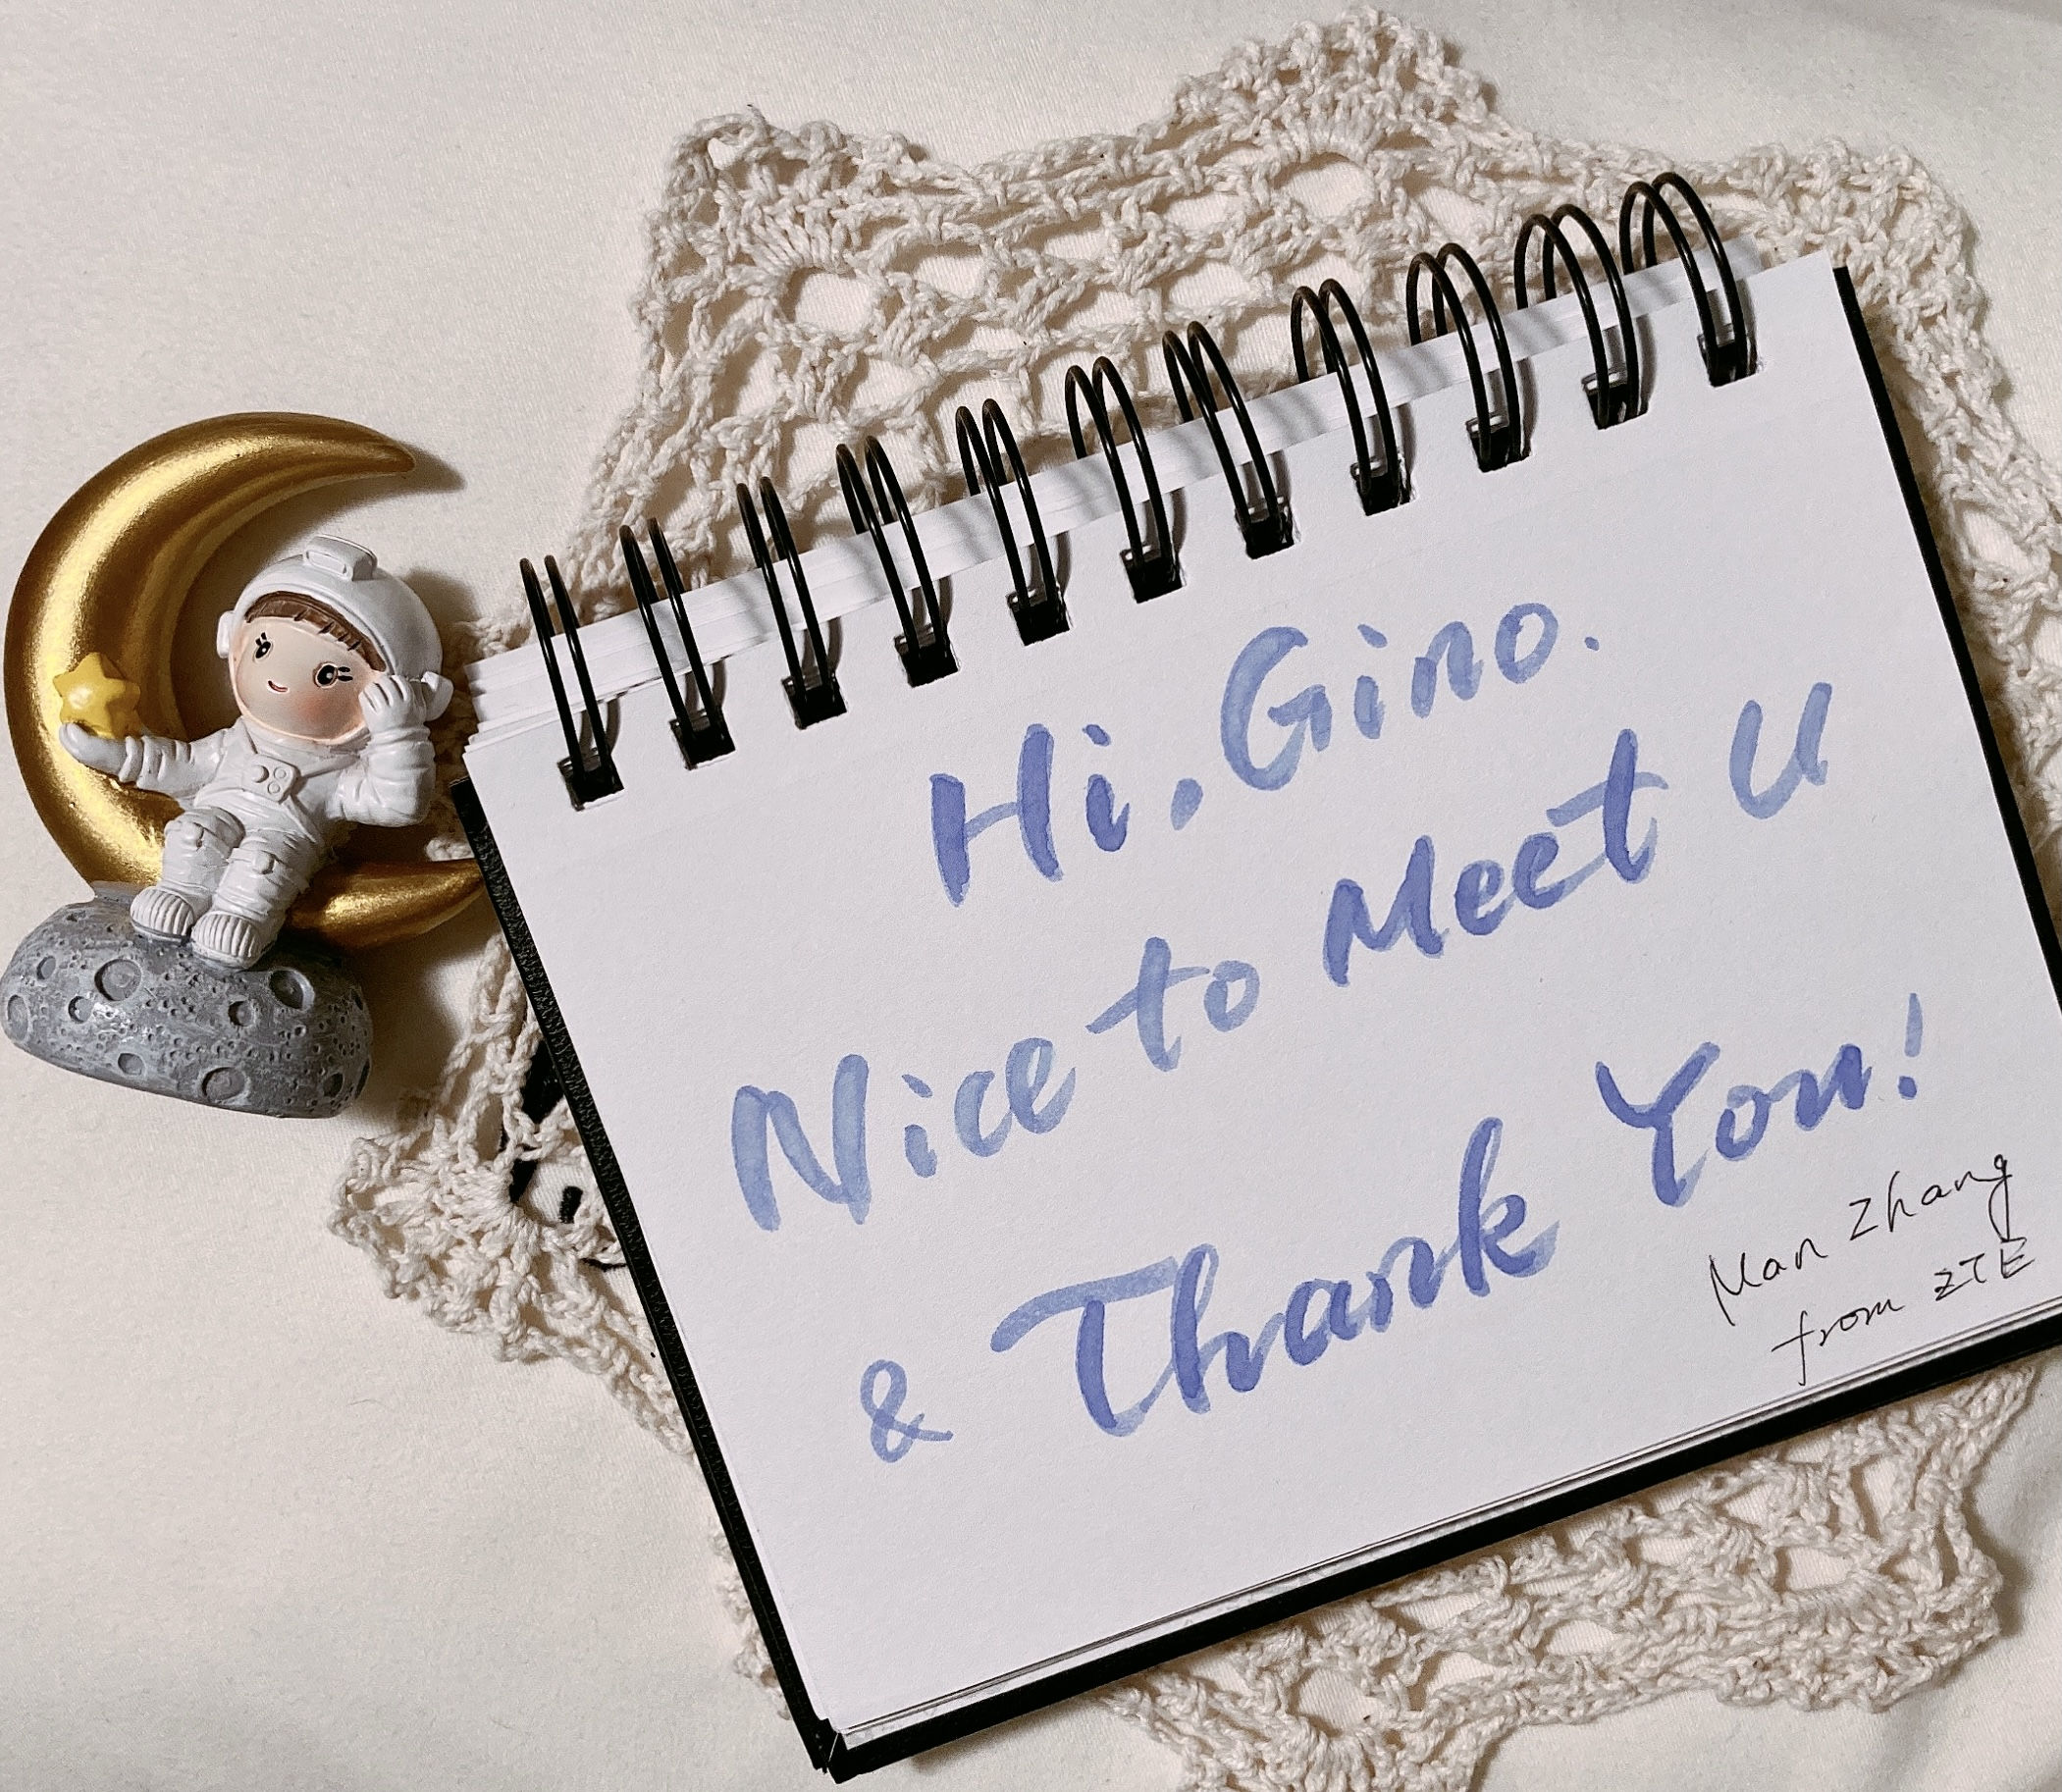 Hi, Gino.
Nice to Meet U
& Thank You!
Man Zhang
from ZTE